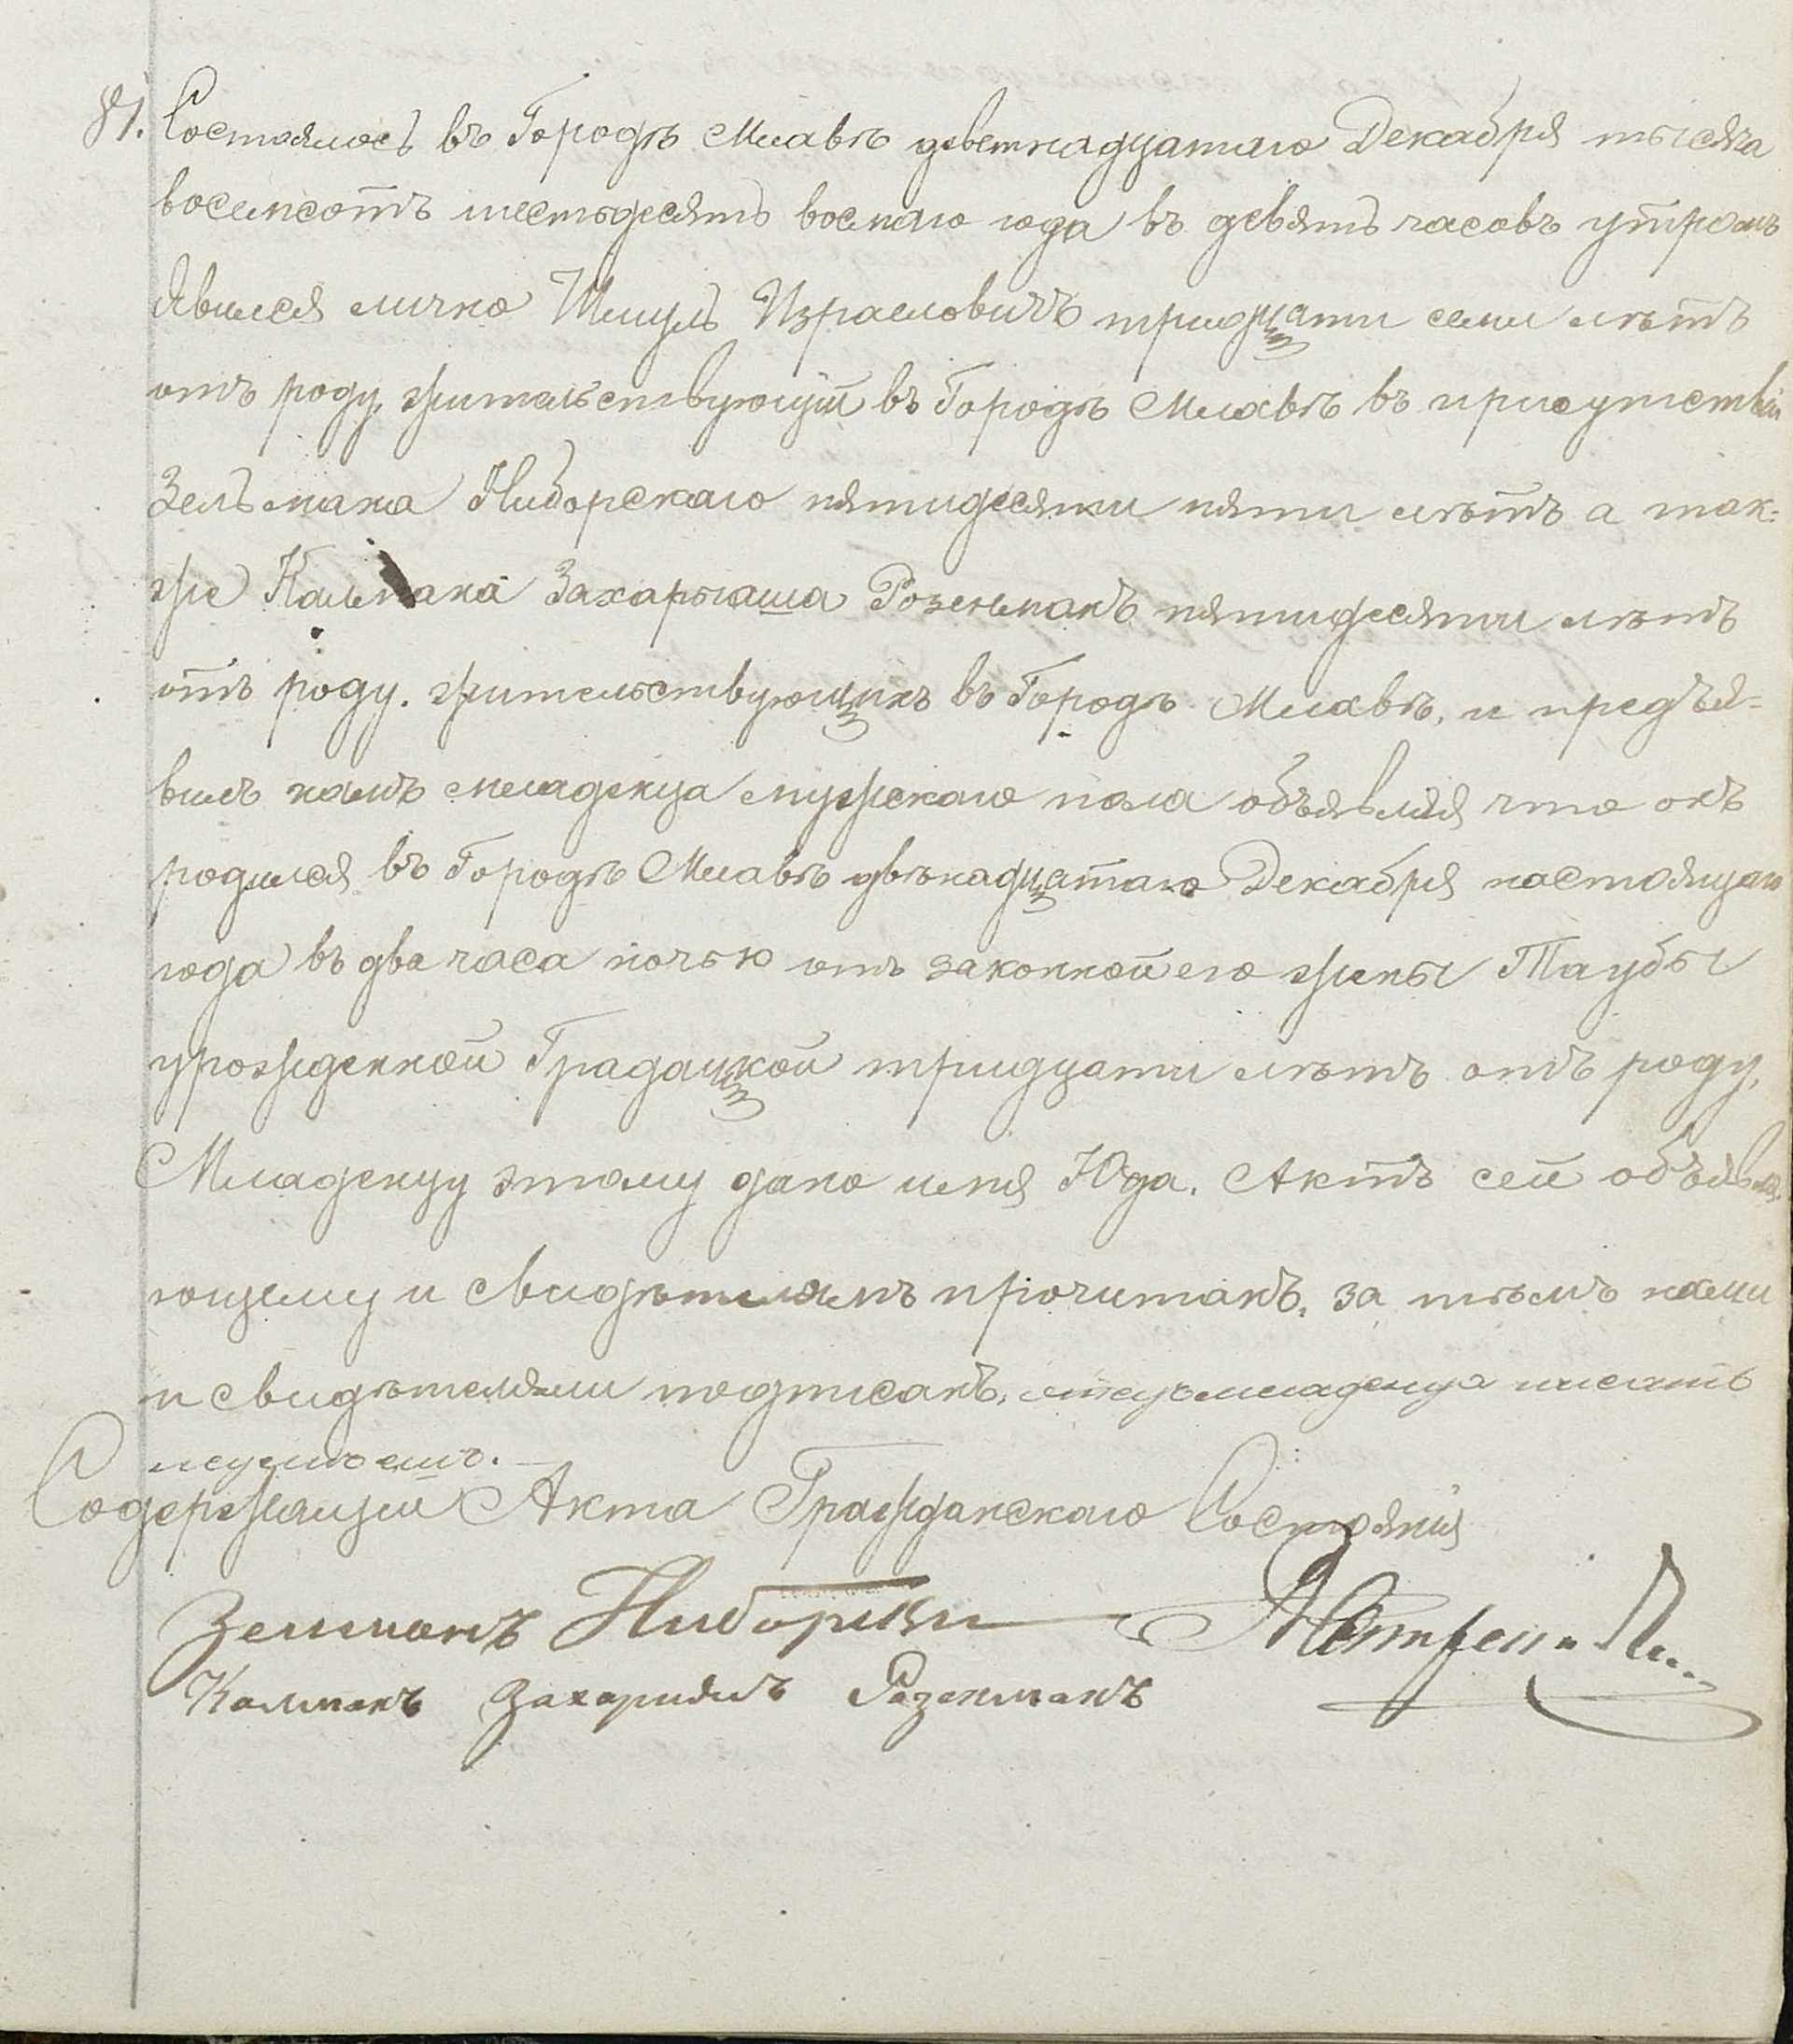 81. Состоялось въ Городѣ Млавѣ деветнадцатаго Декабря тысяча
восемсотъ шестьдесятъ восмаго года въ девять часовъ утромъ
Явился лично Шмуль Израеловичъ тридцати семи лѣтъ
отъ роду, жительствующій въ Городѣ Млавѣ въ присутствіи
Зельмана Ниборскаго пятидесяти пяти лѣтъ а так=
же Кальмана Захарыаша Розенманъ пятидесяти лѣтъ
отъ роду. жительствующихъ въ Городѣ Млавѣ, и предъя=
вилъ намъ младенца мужскаго пола объявляя что онъ
родился въ Городѣ Млавѣ двѣнадцатаго Декабря настоящаго
года въ два часа ночью отъ законной его жены Таубы
урожденной Градацкой тридцати лѣтъ отъ роду,
Младенцу этому дано имя Юда. Актъ сей объявля-
ющему и свидѣтелямъ прочитанъ, за тѣмъ нами
и свидѣтелями подписанъ, отецъ младенца писать
неумѣетъ.
Содержащій Акта Гражданскаго Состоянія
Зельманъ Ниборski
Калманъ Захаріяшъ Розенманъ